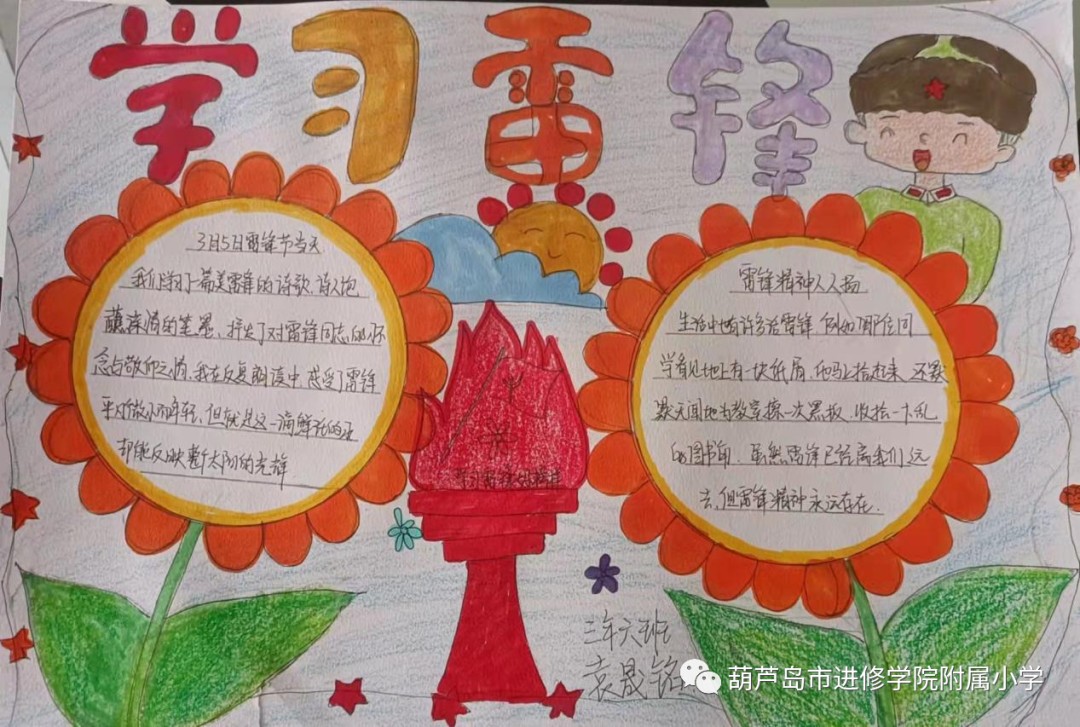 学习雷锋
3月5日雷锋节当天
我们学习了一篇美雷锋的诗歌,诗人饱
蘸深情的笔墨,抒发了对雷锋同志的怀
念与敬仰之情,我在反复朗读中,感受了雷锋
但就是这一滴鲜活的
都能反映整个太阳的光辉
雷锋精神人人扬
生活中也有许多活雷锋,例如:那位同
学看见地上有一块纸屑,他马上捡起来,还默
默无闻地为教室擦一次黑板,收拾一下乱
的图书角.虽然雷锋已经离我们远
去,但雷锋精神永远存在.
三年六班
袁晟铭
葫芦岛市进修学院附属小学